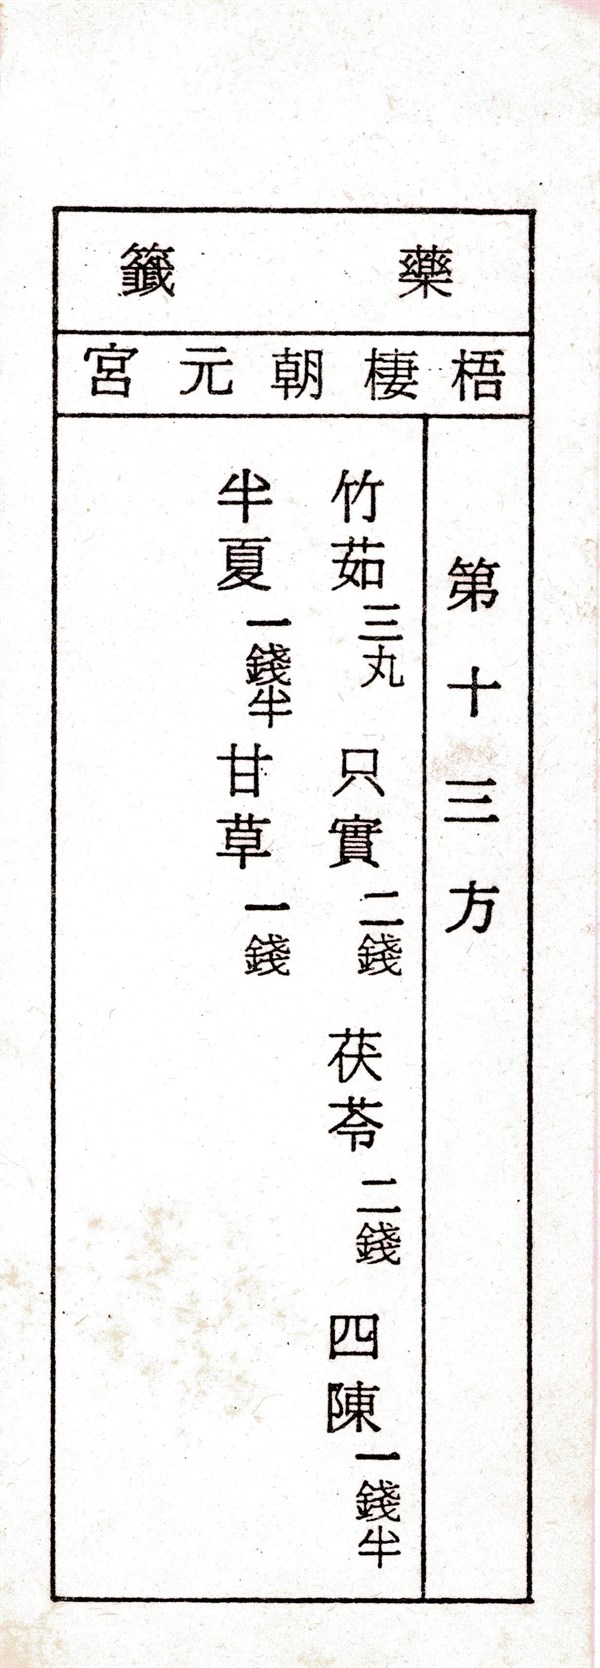 藥籤
梧棲朝元宮
第十三方
竹茹三丸 只實二錢 茯苓二錢 四陳一錢半
半夏一錢半 甘草一錢